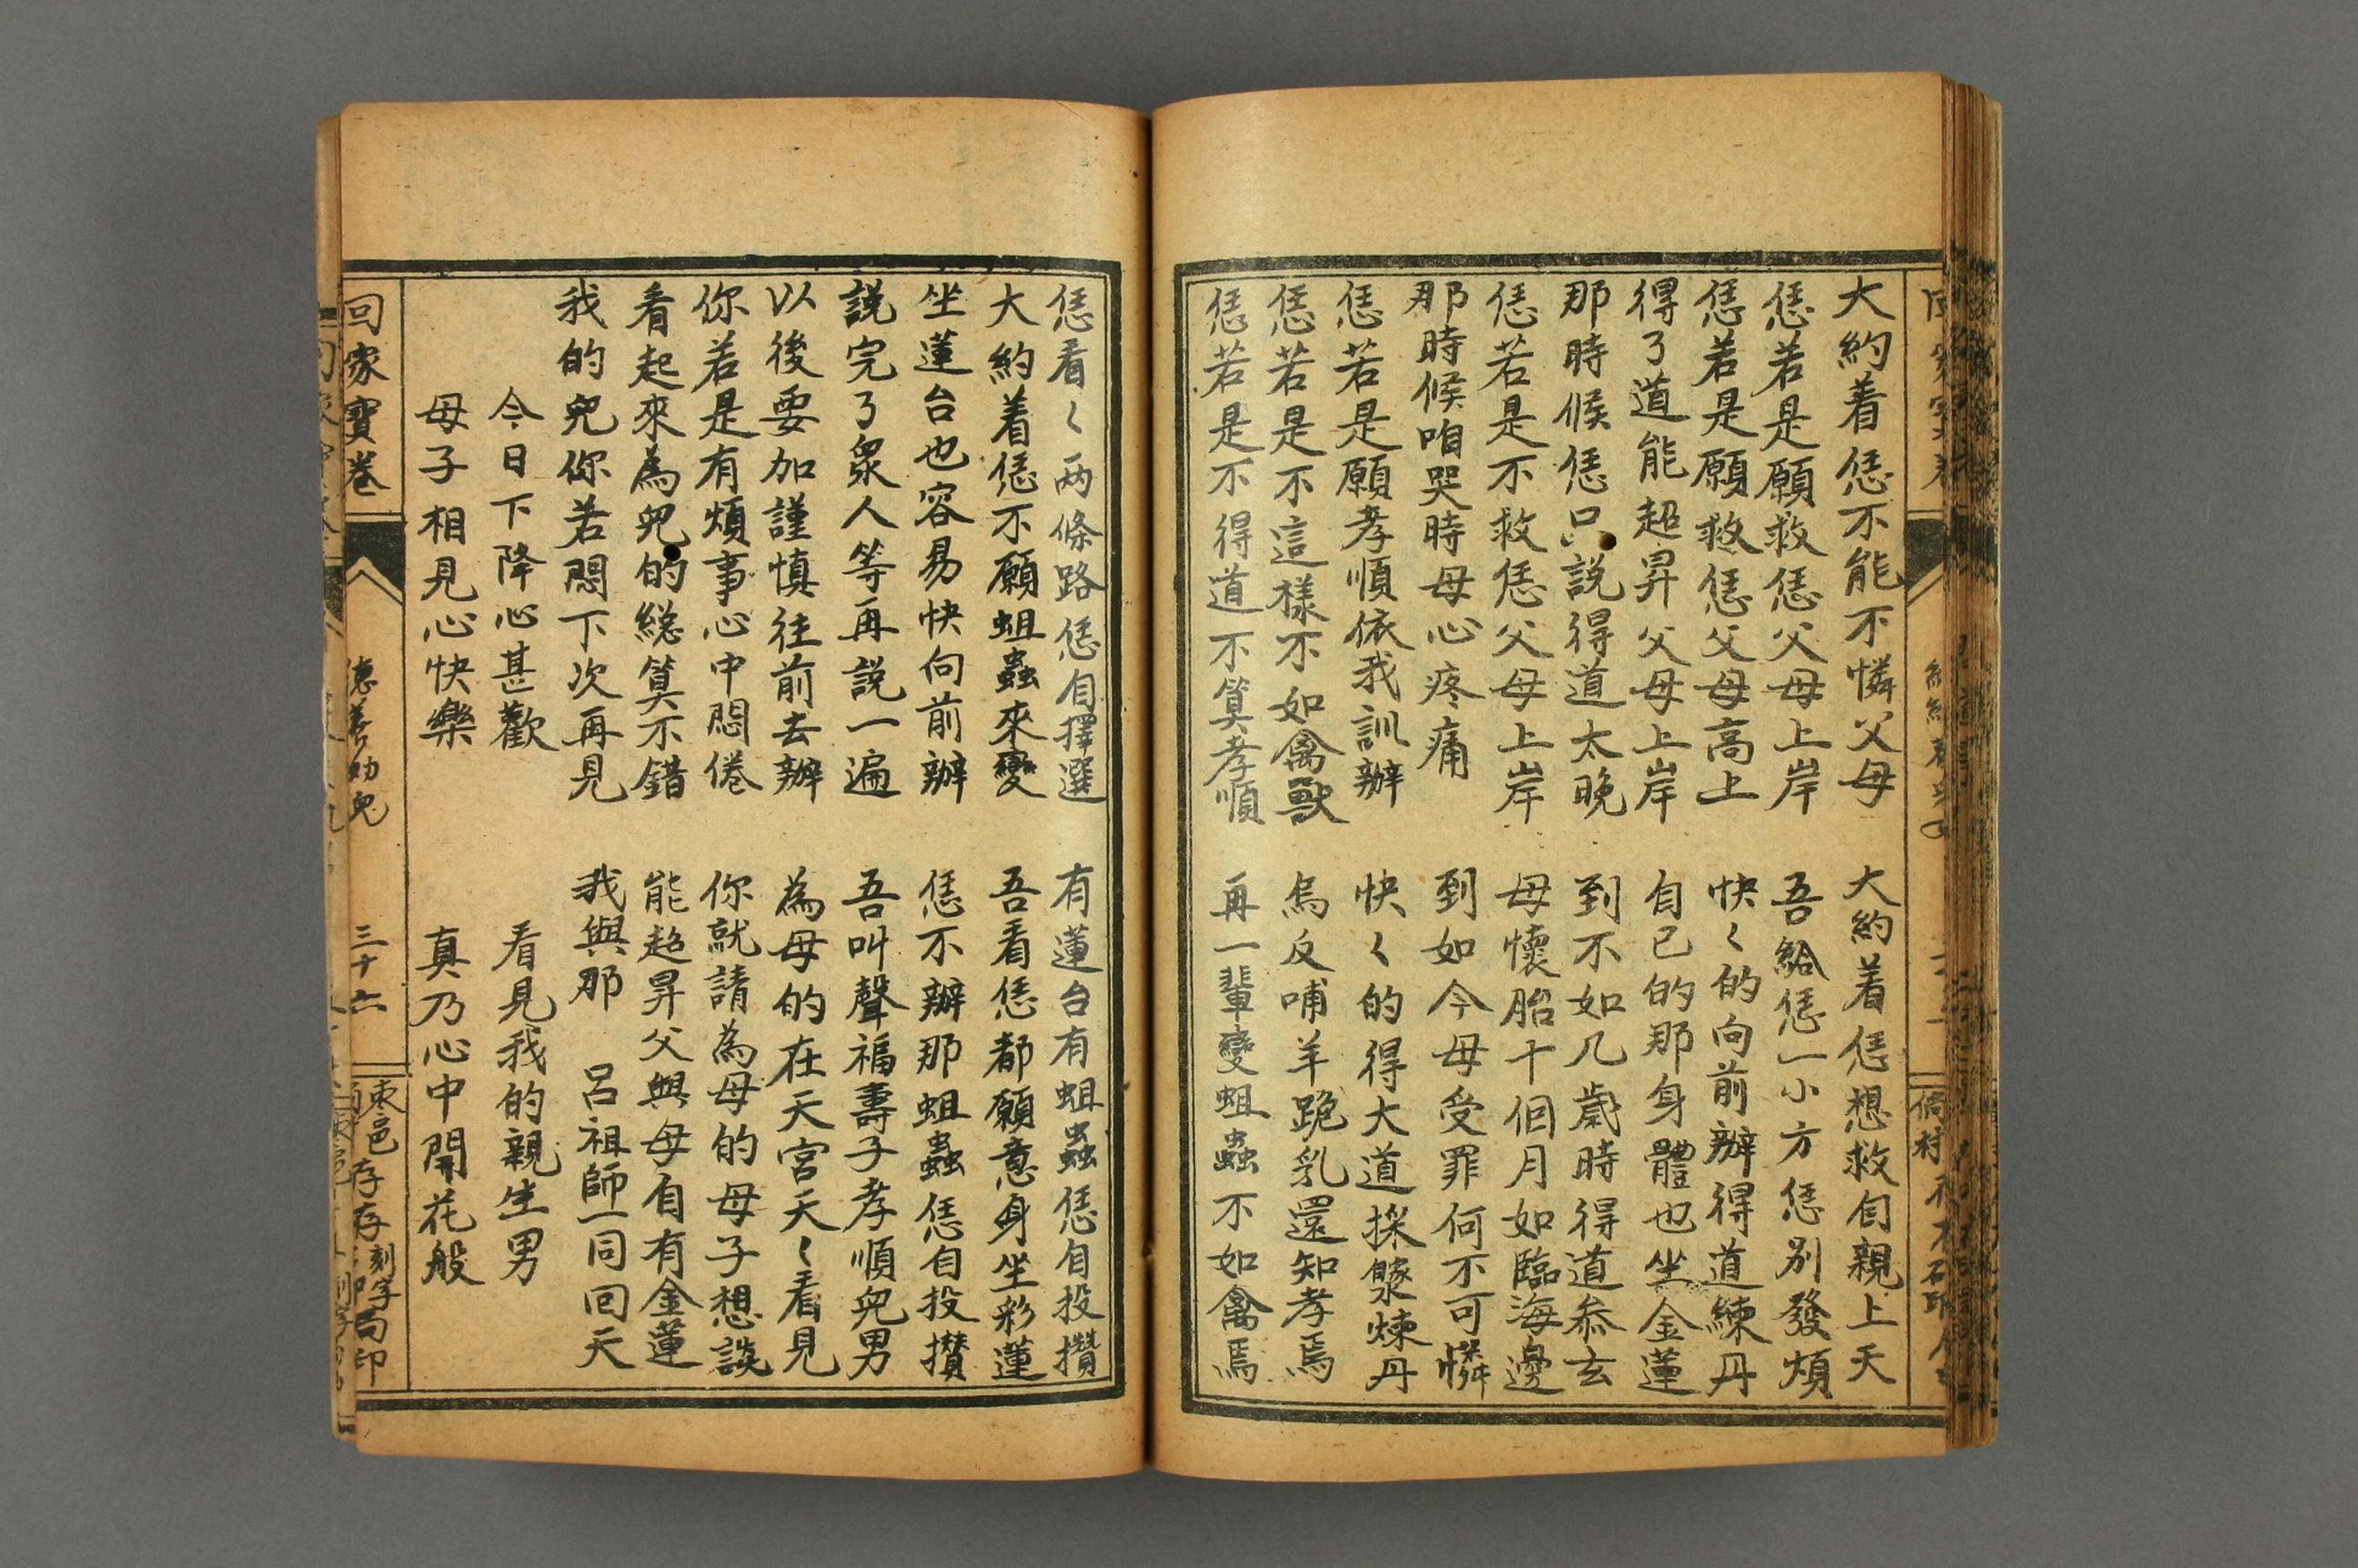 大約着恁不能不憐父母　大約着恁想救自親上天
恁若是願救恁父母上岸　吾給恁一小方恁別發煩
恁若是願救恁父母高上　快〱的向前辦得道練丹
得了道能超昇父母上岸　自已的那身體也坐金蓮
那時候恁只說得道太晚　到不如几歲時得道叅玄
恁若是不救恁父母上岸　母懷胎十個月如臨海邊
那時候咱哭時母心疼痛　到如今母受罪何不可憐
恁若是願孝順依我訓辦　快〱的得大道採〱煉丹
恁若是不這樣不如禽獸　烏反哺羊跪乳還知孝焉
恁若是不得道不算孝順　再一輩變蛆蟲不如禽焉
恁看〱两條路恁自擇選　有蓮台有蛆蟲恁自投攢
大約着恁不願蛆蟲來變　吾看恁都願意身坐彩蓮
坐蓮台也容易快向前辦　恁不辦那蛆蟲恁自投攢
説完了衆人等再説一遍　吾叫聲福壽子孝順兒男
以後要加謹慎往前去辦　為母的在天宮天〱看見
你若是有煩事心中悶倦　你就請為母的母子想談
看起來為兒的総算不錯　能超昇父與母自有金蓮
我的兒你若悶下次再見　我與那　呂祖師一同回天
今日下降心甚歡　看見我的親生男
母子相見心快樂　真乃心中開花般
回家寶卷　德善幼兒　三十六　棗邑存存刻字局印